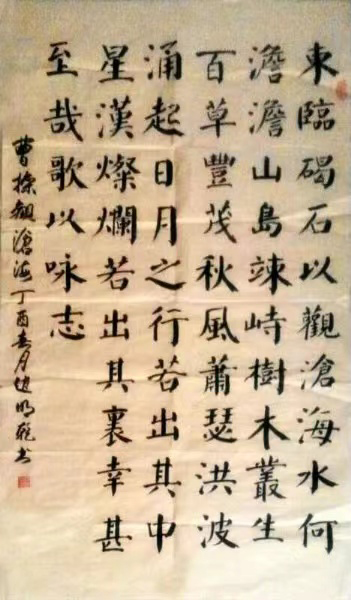 東臨碣石以觀滄海水何
澹澹山島竦峙樹木叢生
百草豐茂秋風蕭瑟洪波
涌起日月之行若出其中
星漢燦爛若出其裏幸甚
至哉歌以咏志
曹操觀滄海丁酉春月书